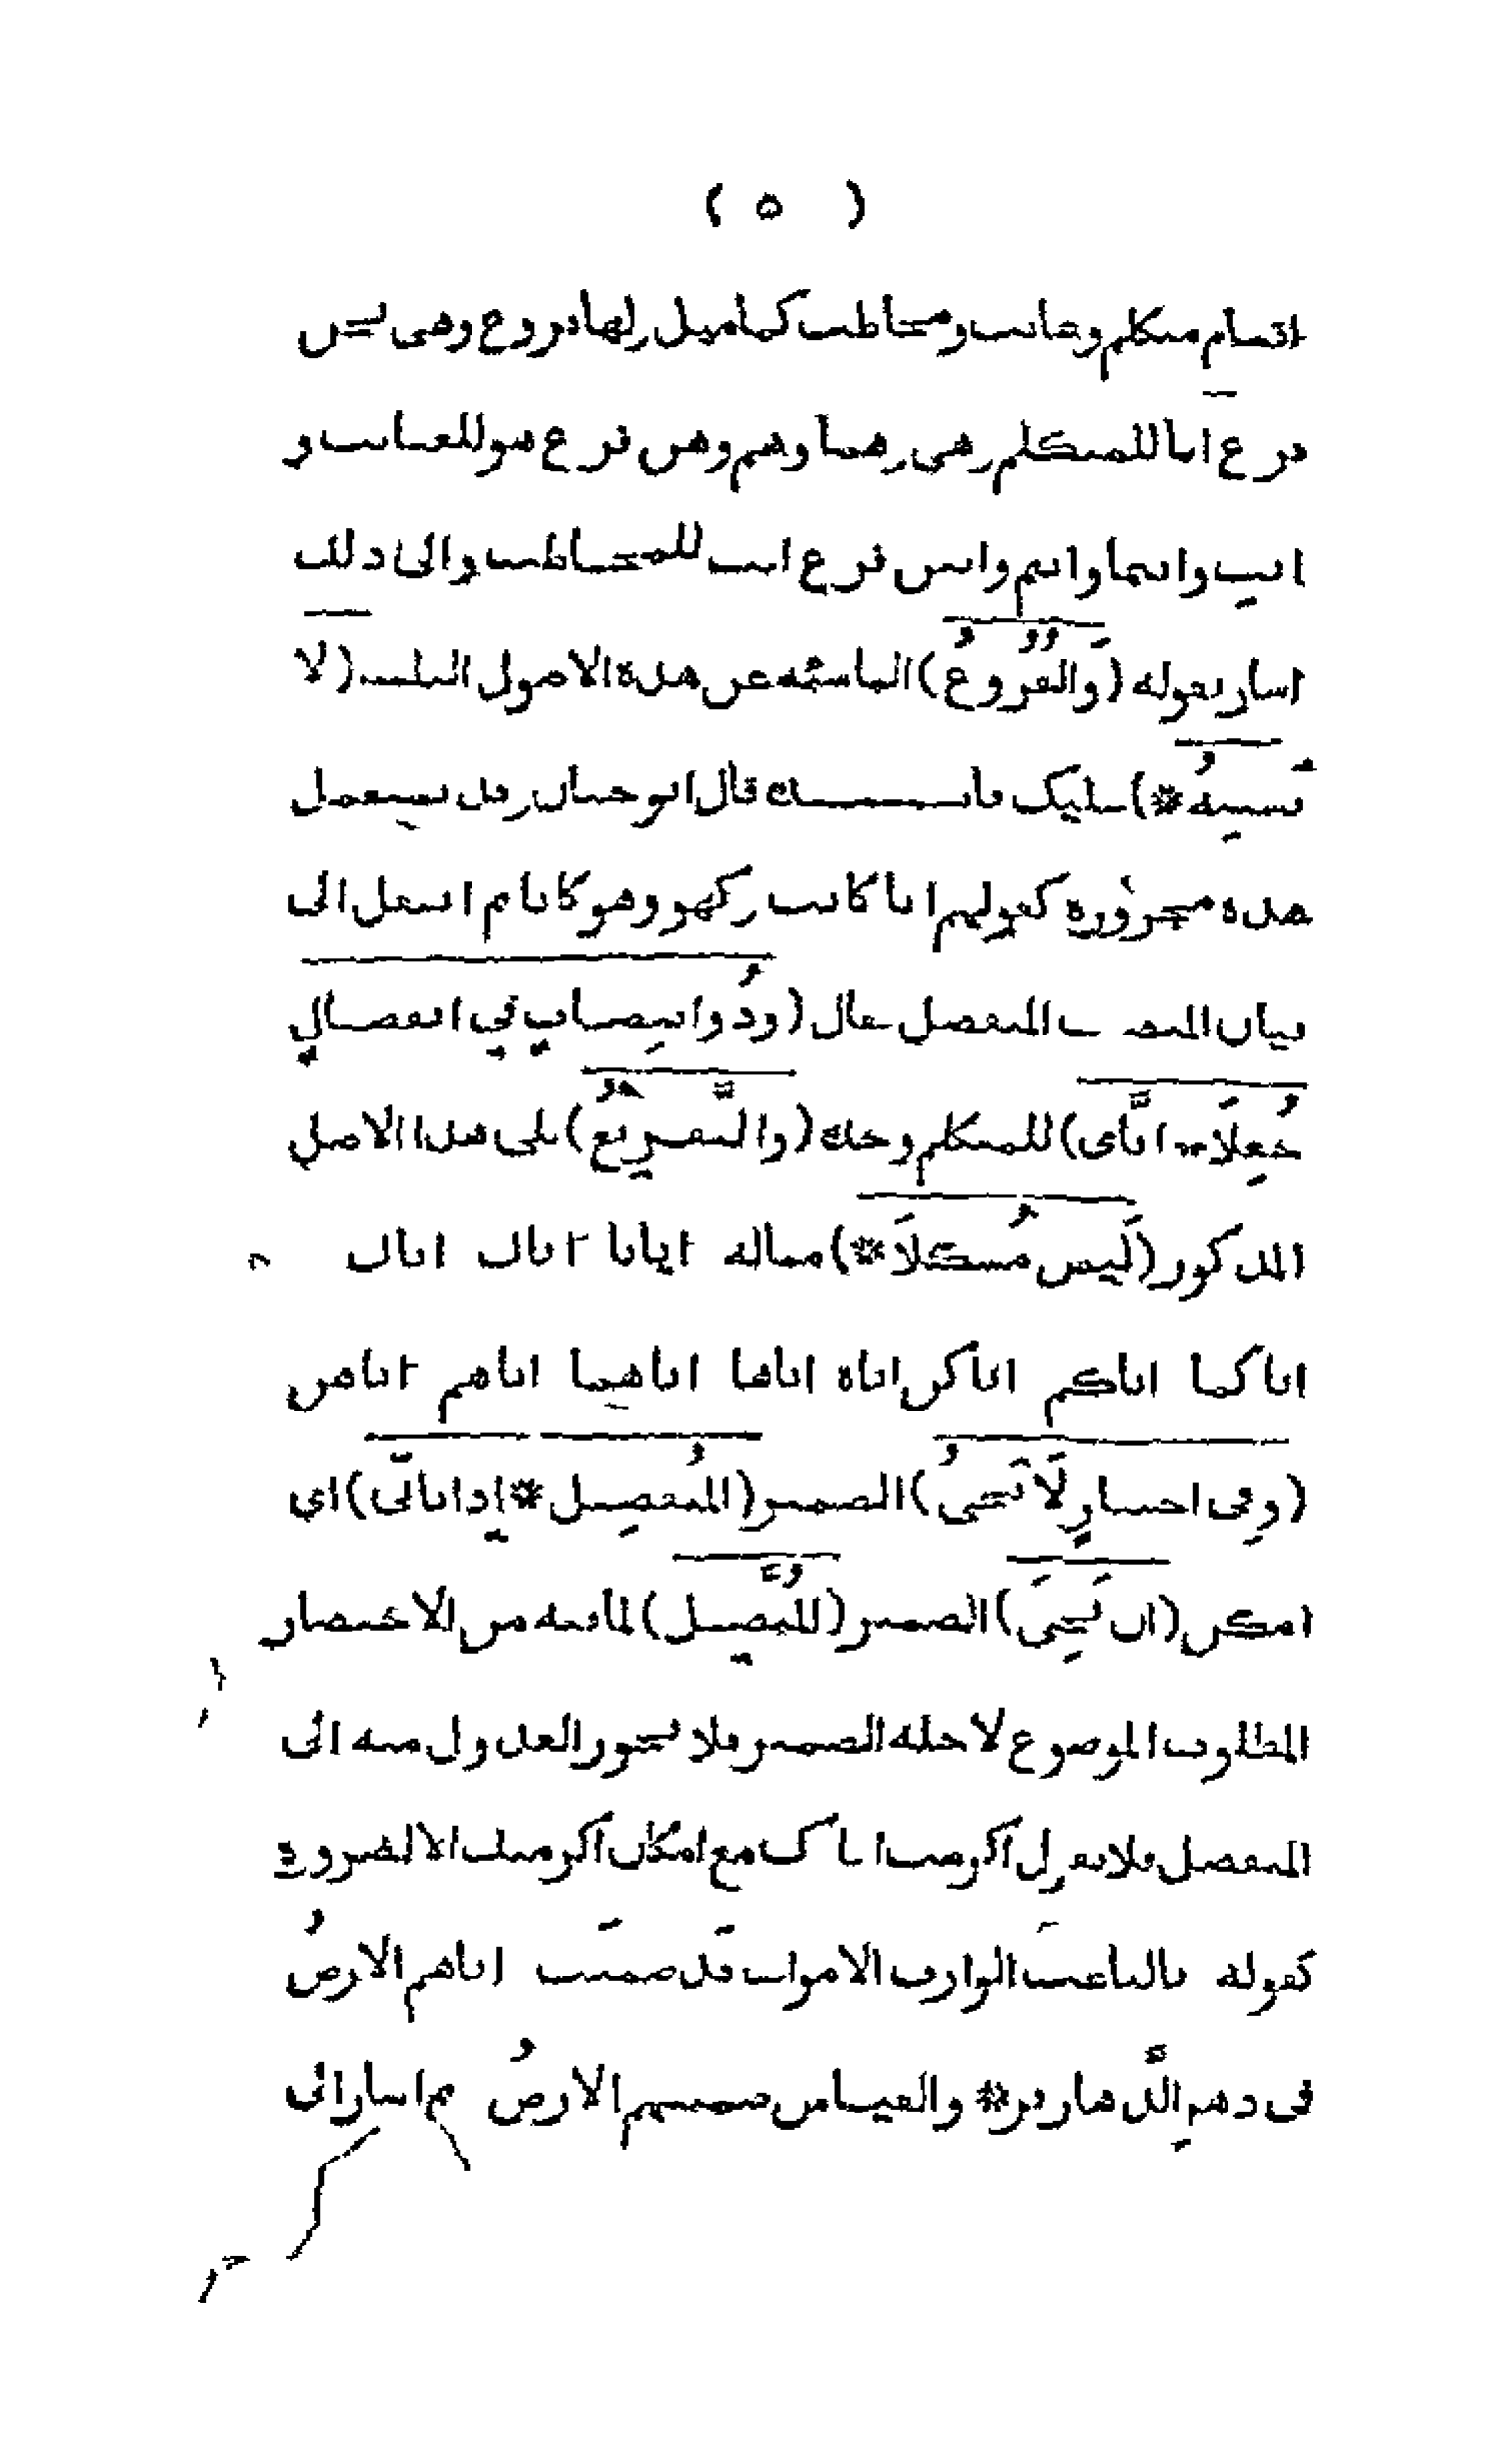 ( ٥ )
اقسام متكلم وغائب ومخاطب كما قيل ولها فروع وهى نحن
فرع انا للمتكلم وهى وهما وهم وهن فرع هو للغائب و
انت وانتما وانتم وانتن فرع انت للمخاطب والى ذلك
اشار بقوله (وَالفُرُوعُ) الناشئة عن هذه الاصول الثلثة (لا
تَشتبِهُ*) عليك قال ابو حيان وقد تستعمل
هذه مجرورة كقولهم انا كانت وكهو وهو كانا ثم انتقل الى
بيان المنفصل فقال (وذُو انتِصابٍ فِي انفصالٍ
جُعِلاَ* ايَّاىَ) للمتكلم وحده (والتَّفرِيعُ) على هذا الاصل
المذكور (لَيسَ مُشكلاَ*) مثاله ايانا اياك اياك
اياكما اياكم اياكن اياه اياها اياهما اياهم اياهن
(وفِى اختيارٍ لَا يَجىُ) الضمير (المُنفصِل* إِذا تأتّى) اى
امكن (ان يَجِىَ) الضمير (المُتَّصِل) لما فيه من الاختصار
المطلوب الموضوع لاجله الضمير فلا يجوز العدول منه الى
المنفصل فلا تقول اكرمت اياك مع امكان اكرمتك الا لضرورة
كقوله بالباعثَ الوارث الاموات قَد ضمنَت اياهم الارضُ
فى دهرِ الدَّهارير* والقياس ضمنتهم الارضُ ثم اشار الى